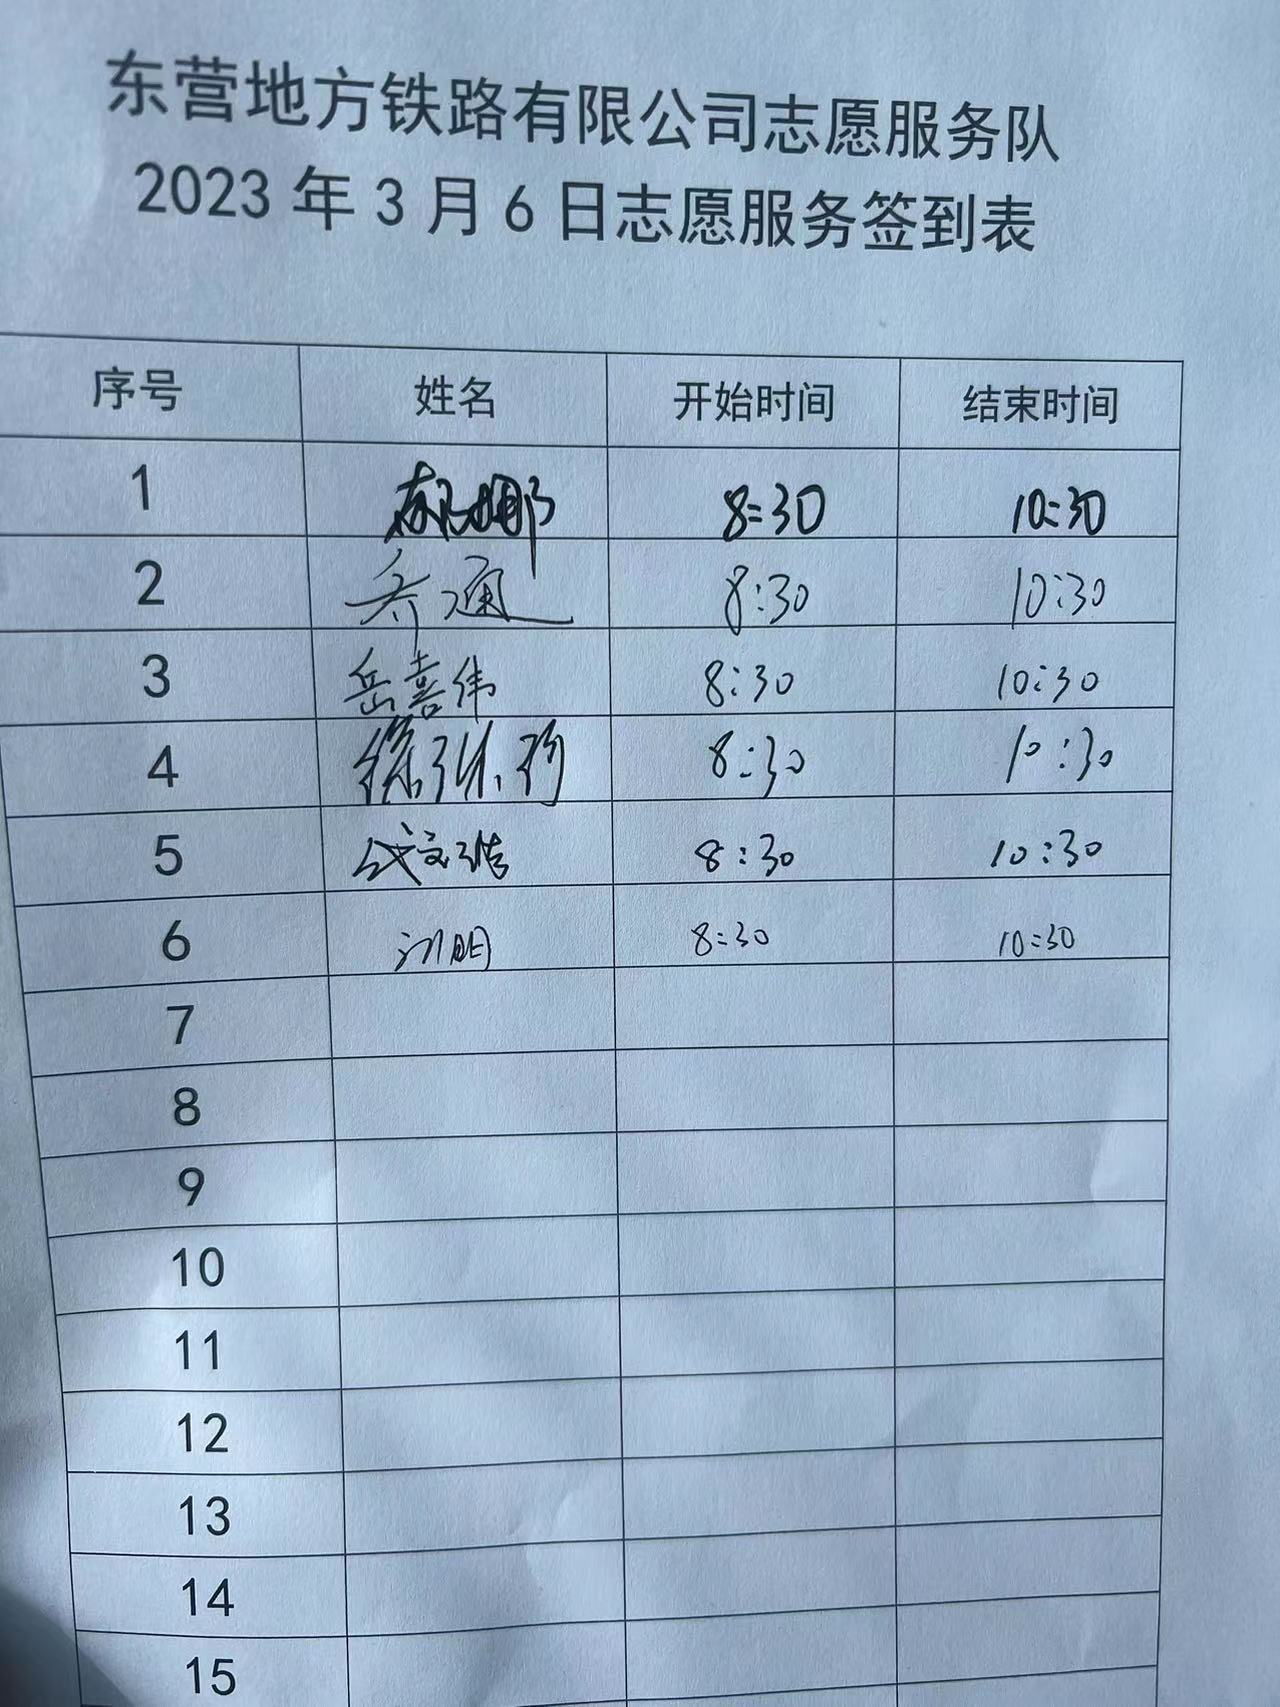 东营地方铁路有限公司志愿服务队
2023年3月6日志愿服务签到表
序号 姓名 开始时间 结束时间
1 8:30 10:30
2 乔通 8:30 10:30
3 岳喜伟 8:30 10:30
4 8:30 10:30
5 8:30 10:30
6 8:30 10:30
7
8
9
10
11
12
13
14
15